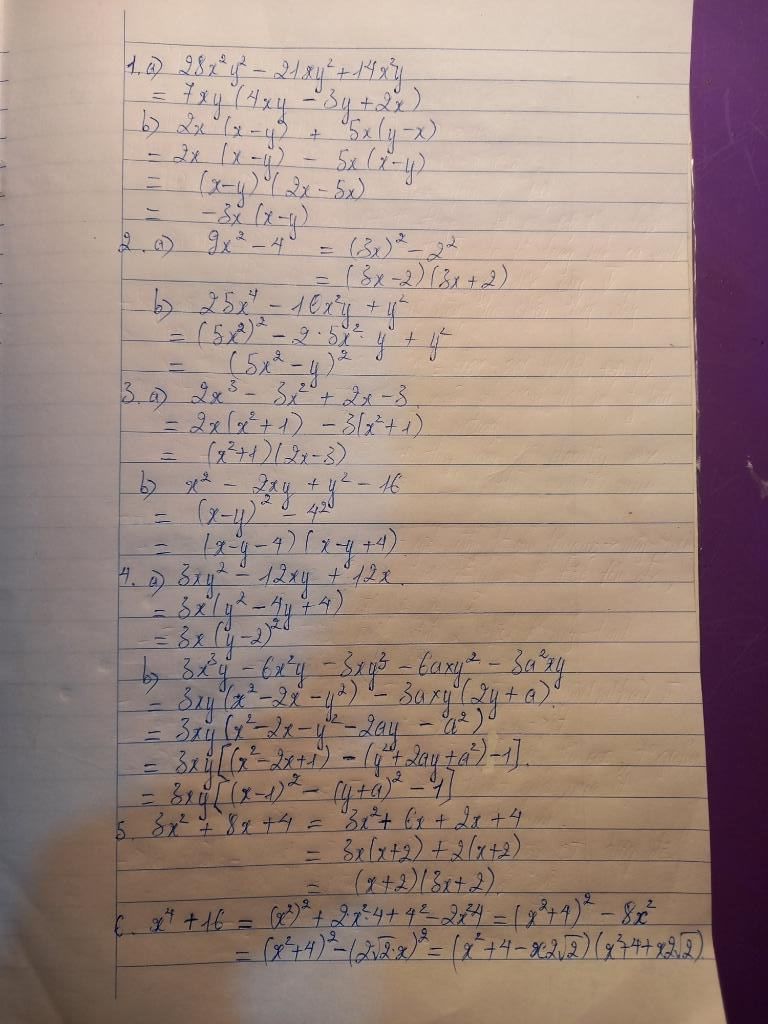 1. a) 28x²y² - 21xy² + 14x²y
= 7xy (4xy - 3y + 2x)
b) 2x (x-y) + 5x(y-x)
= 2x (x-y) - 5x(x-y)
= (x-y) (2x-5x)
= -3x (x-y)
2. a) 9x² - 4 = (3x)² - 2²
= (3x-2)(3x+2)
b) 25x⁴ - 10x²y + y²
= (5x²)² - 2·5x²·y + y²
= (5x² - y)²
3. a) 2x³ - 3x² + 2x - 3
= 2x(x²+1) - 3(x²+1)
= (x²+1)(2x-3)
b) x² - 2xy + y² - 16
= (x-y)² - 4²
= (x-y-4)(x-y+4)
4. a) 3xy² - 12xy + 12x
= 3x(y² - 4y + 4)
= 3x (y-2)²
b) 3x³y - 6x²y - 3xy³ - 6axy² - 3a²xy
= 3xy(x² - 2x - y²) - 3axy(2y + a)
= 3xy(x² - 2x - y² - 2ay - a²)
= 3xy[(x² - 2x + 1) - (y² + 2ay + a²) - 1]
= 3xy[(x-1)² - (y+a)² - 1]
5. 3x² + 8x + 4 = 3x² + 6x + 2x + 4
= 3x(x+2) + 2(x+2)
= (x+2)(3x+2)
6. x⁴ + 16 = (x²)² + 2x²·4 + 4² - 2x²4 = (x²+4)² - 8x²
= (x²+4)² - (2√2·x)² = (x²+4-x2√2)(x²+4+x2√2)